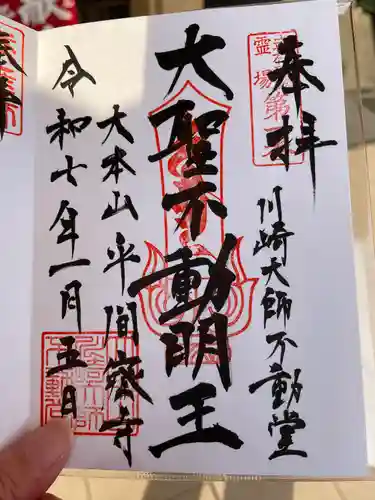 奉拝
川崎大師不動堂
霊場第
大聖不動明王
大本山平間寺
令和七年一月五日